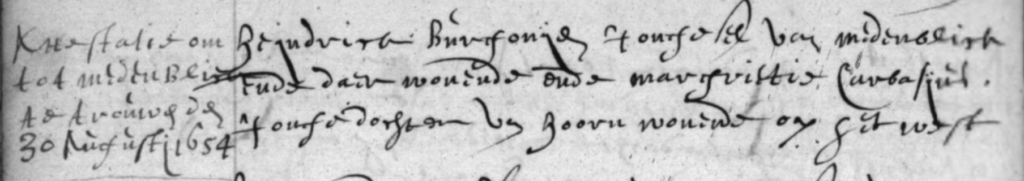 Attestatie om
tot medenblick
te trouwen den
30 Augusti 1654
heijndrick Burgonjen Jonckesel van medenblick
ende daer wonende ende margrittie Carbasius.
Jonghe dochter van hoorn wonende op het west